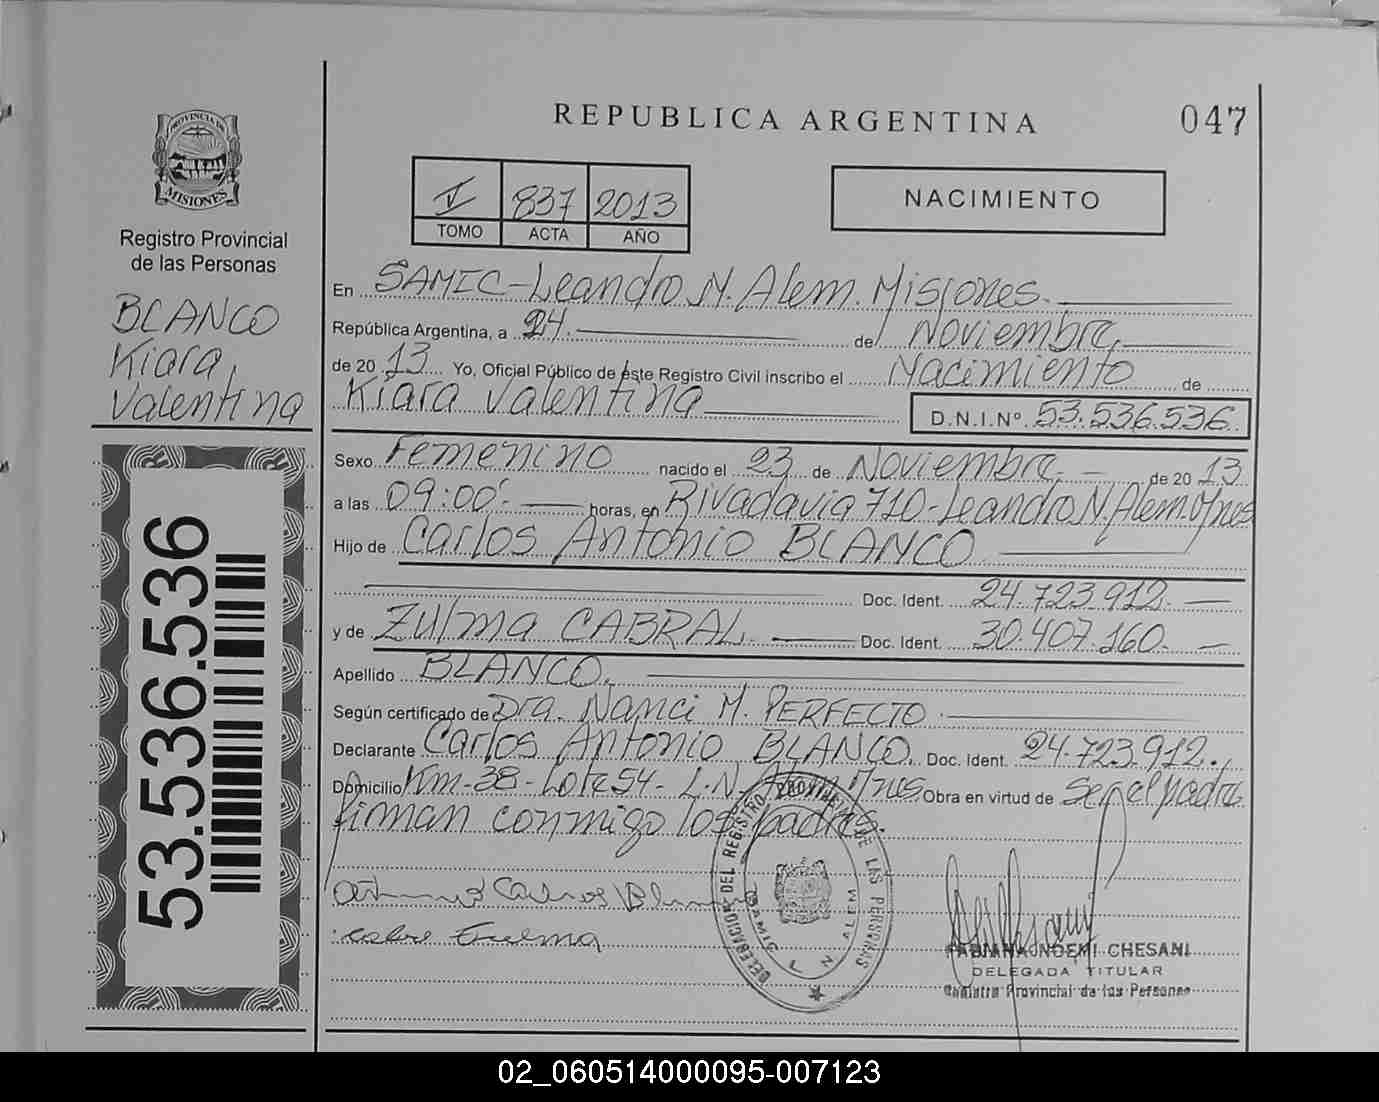 REPUBLICA ARGENTINA
047
PROVINCIA DE
MISIONES
Registro Provincial
de las Personas
BLANCO
Kiara,
Valentina
53.536.536
I 837 2013
TOMO ACTA AÑO
NACIMIENTO
En SAMIC-Leandro N. Alem. Misiones.
República Argentina, a 24. de Noviembre,
de 20 13 Yo, Oficial Público de éste Registro Civil inscribo el Nacimiento de
Kiara Valentina D.N.I.Nº. 53.536.536.
Sexo Femenino nacido el 23 de Noviembre, de 20 13
a las 09:00'. horas, en Rivadavia 710-Leandro N. Alem. Mnes
Hijo de Carlos Antonio BLANCO
Doc. Ident. 24.723.912.
y de Zulma CABRAL Doc. Ident. 30.407.160.
Apellido BLANCO.
Según certificado de Dra. Nanci M. PERFECTO.
Declarante Carlos Antonio BLANCO. Doc. Ident. 24.723.912.,
Domicilio Km-38-Lote 54- L.N. Alem Mnes Obra en virtud de ser el padre
firman conmigo los padres.
DELEGACION DEL REGISTRO PROVINCIAL DE LAS PERSONAS
SAMIC
L N ALEM
FABIANA NOEMI CHESANI
DELEGADA TITULAR
Registro Provincial de las Personas
02_060514000095-007123